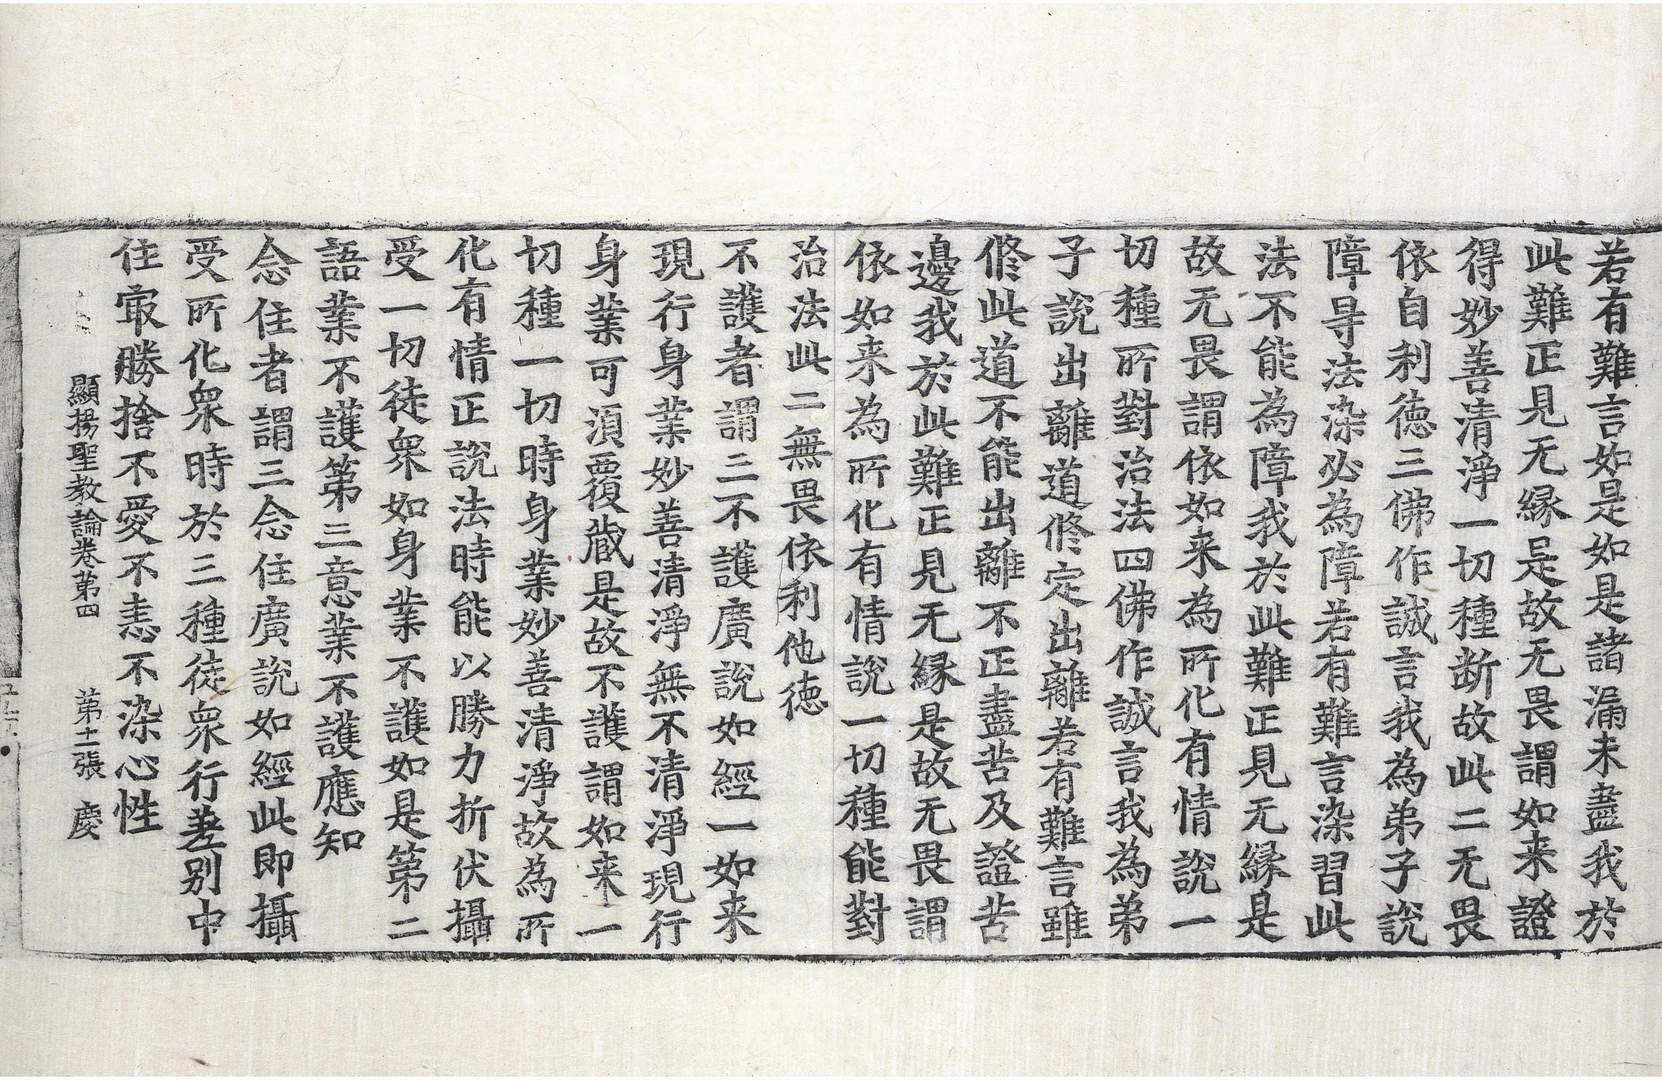 若有難言如是如是諸漏未盡我於
此難正見无縁是故无畏謂如来證
得妙善清淨一切種断故此二无畏
依自利德三佛作誠言我為弟子說
障㝵法染必為障若有難言染習此
法不能為障我於此難正見无縁是
故无畏謂依如来為所化有情說一
切種所對治法四佛作誠言我為弟
子說出離道修定出離若有難言雖
修此道不能出離不正盡苦及證苦
邊我於此難正見无縁是故无畏謂
依如来為所化有情說一切種能對
治法此二無畏依利他德
不護者謂三不護廣說如經一如来
現行身業妙善清淨無不清淨現行
身業可湏覆藏是故不護謂如来一
切種一切時身業妙善清淨故為所
化有情正說法時能以勝力折伏攝
受一切徒衆如身業不護如是第二
語業不護第三意業不護應知
念住者謂三念住廣說如經此即攝
受所化衆時於三種徒衆行差别中
住㝡勝捨不愛不恚不染心性
顯揚聖教論卷第四 第十一張 慶